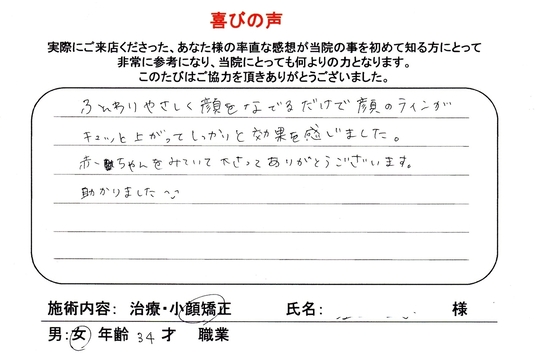 喜びの声
実際にご来店くださった、あなた様の率直な感想が当院の事を初めて知る方にとって
非常に参考になり、当院にとっても何よりの力となります。
このたびはご協力を頂きありがとうございました。
ふんわりやさしく顔をなでるだけで顔のラインが
キュッと上がってしっかりと効果を感じました。
赤ちゃんをみていて下さってありがとうございます。
助かりました
施術内容: 治療・小顔矯正 氏名: 様
男:女 年齢 34 才 職業